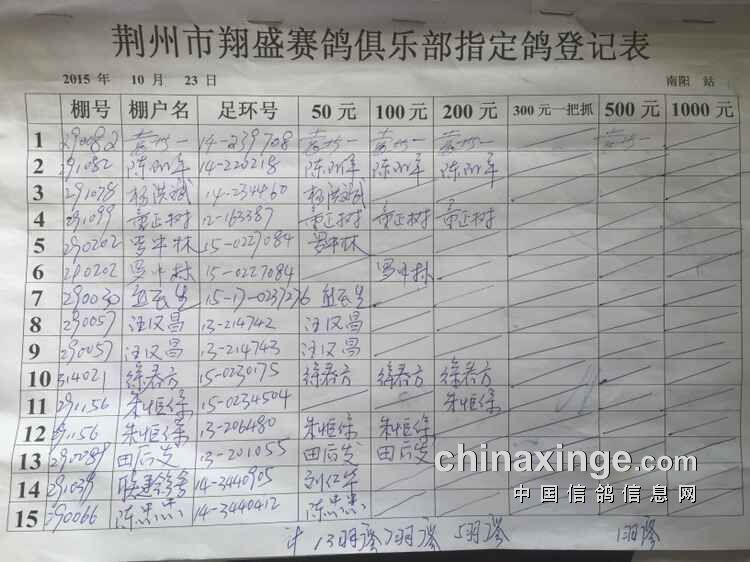 荆州市翔盛赛鸽俱乐部指定鸽登记表
2015 年 10 月 23 日 南阳 站
棚号 棚户名 足环号 50 元 100 元 200 元 300 元一把抓 500 元 1000 元
1 290082 14-239708
2 291082 陈明军 14-220218 陈明军 陈明军 陈明军
3 291078 杨洪斌 14-234460 杨洪斌
4 291099 童正树 12-163387 童正树 童正树 童正树
5 290202 罗中林 15-0227084 罗中林
6 290202 罗中林 15-0227084 罗中林
7 290030 15-17-0237276
8 290057 汪汉昌 13-214742 汪汉昌
9 290057 汪汉昌 13-214743 汪汉昌
10 314021 徐春方 15-0230175 徐春方 徐春方 徐春方
11 291156 朱恒保 15-0234504 朱恒保
12 91156 朱恒保 13-206480 朱恒保 朱恒保
13 290089 田后发 13-201055 田后发 田后发
14 291039 联建鸽舍 14-3440905 刘红华
15 90066 陈忠杰 14-3440412 陈忠杰
计 13羽 7羽 5羽 1羽
chinaxinge.com
中国信鸽信息网